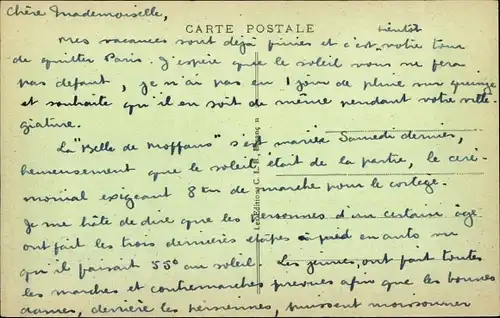 Chère Mademoiselle,
CARTE POSTALE
bientôt
Mes vacances sont déjà finies et c'est votre tour
de quitter Paris. J'espère que le soleil vous ne fera
pas défaut, je n'ai pas eu 1 jour de pluie sur quinze
et souhaite qu'il en soit de même pendant votre ville
giature.
La "Belle de Moffans" s'est mariée Samedi dernier,
heureusement que le soleil était de la partie, le céré-
monial exigeant 8 km de marche pour le cortège.
Je me hâte de dire que les personnes d'un certain âge
ont fait les trois dernières étapes à pied en auto vu
qu'il faisait 55° au soleil. Les jeunes, ont fait toutes
les marches et contremarches prévues afin que les bonnes
dames, derrière les persiennes, puissent moissonner
Les Editions C. L. B.